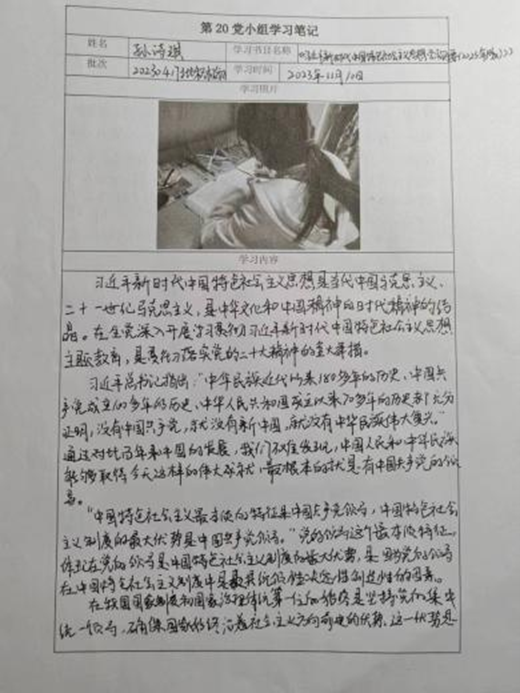 第20党小组学习笔记
姓名 孙诗琪 学习书目名称 《习近平新时代中国特色社会主义思想学习纲要(2023年版)》
批次 20230417 学习时间 2023年11月10日
学习照片
学习内容
习近平新时代中国特色社会主义思想是当代中国马克思主义、
二十一世纪马克思主义,是中华文化和中国精神的时代精神的结
晶。在全党深入开展学习贯彻习近平新时代中国特色社会主义思想
主题教育,是贯彻落实党的二十大精神的重大举措。
习近平总书记指出:“中华民族近代以来180多年的历史、中国共
产党成立100多年的历史、中华人民共和国成立以来70多年的历史都充分
证明,没有中国共产党,就没有新中国,就没有中华民族伟大复兴。”
通过对比百年来中国的发展,我们不难发现,中国人民和中华民族
能够取得今天这样的伟大成就,最根本的就是有中国共产党的领
导。
“中国特色社会主义最本质的特征是中国共产党领导,中国特色社会
主义制度的最大优势是中国共产党领导。”党的领导这个最本质特征,
体现在党的领导是中国特色社会主义制度的最大优势,是因为党的领导
在中国特色社会主义制度中是最具统领性决定性制度性的因素。
在我国国家制度和国家治理体系第一位的优势是坚持党的集中
统一领导,确保国家始终沿着社会主义方向前进的优势,这一优势是